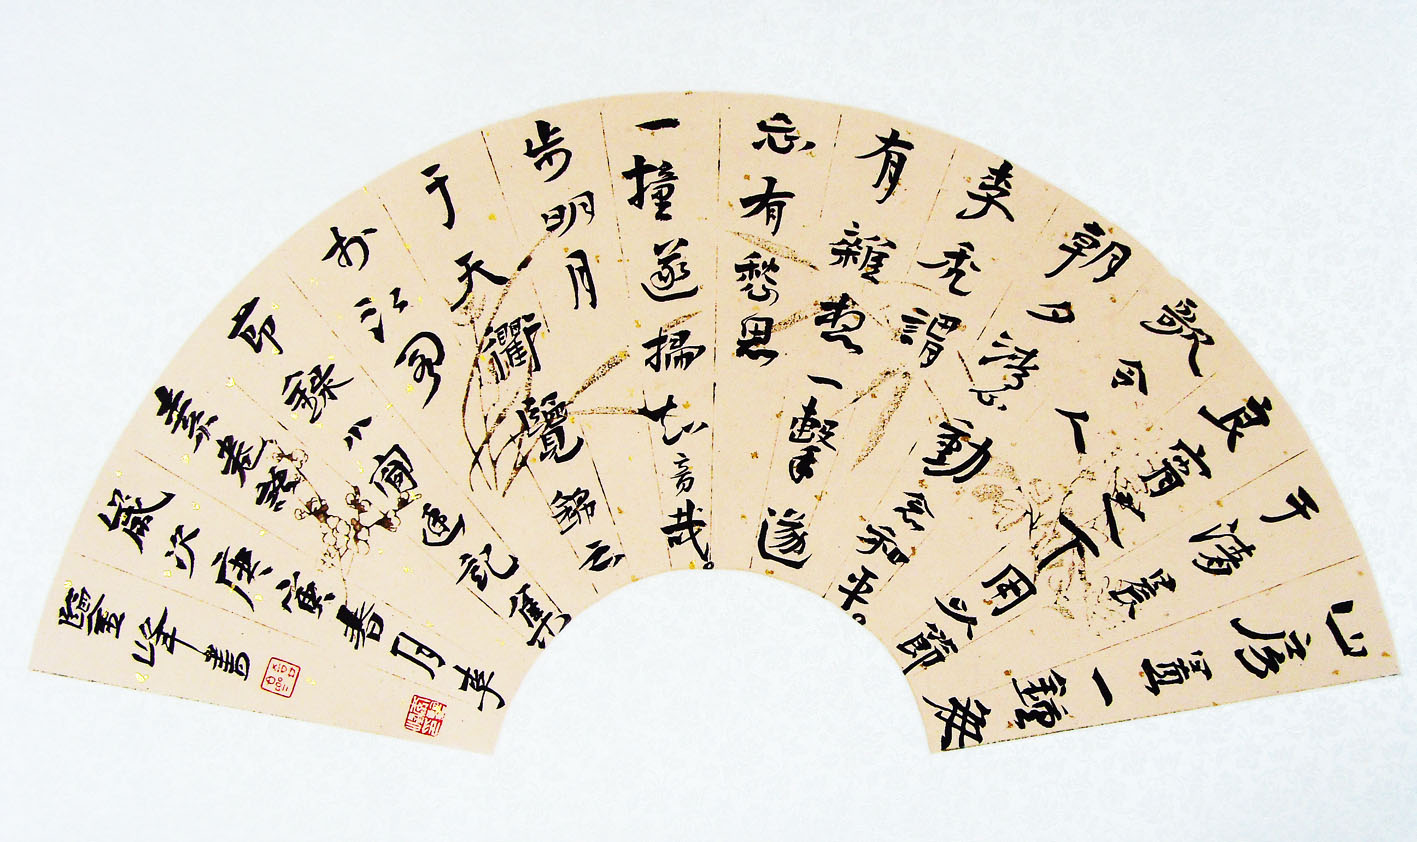 山房置一鐘每
于清晨
良宵之下用以節
歌令人
朝夕清心動念和平。
李禿謂
有雜想一擊遂
忘有愁思
一撞遂掃知音哉。
步明月
于天衢覽錦云
於江閣
節錄小窗幽記集
歲次庚寅春月
峰書